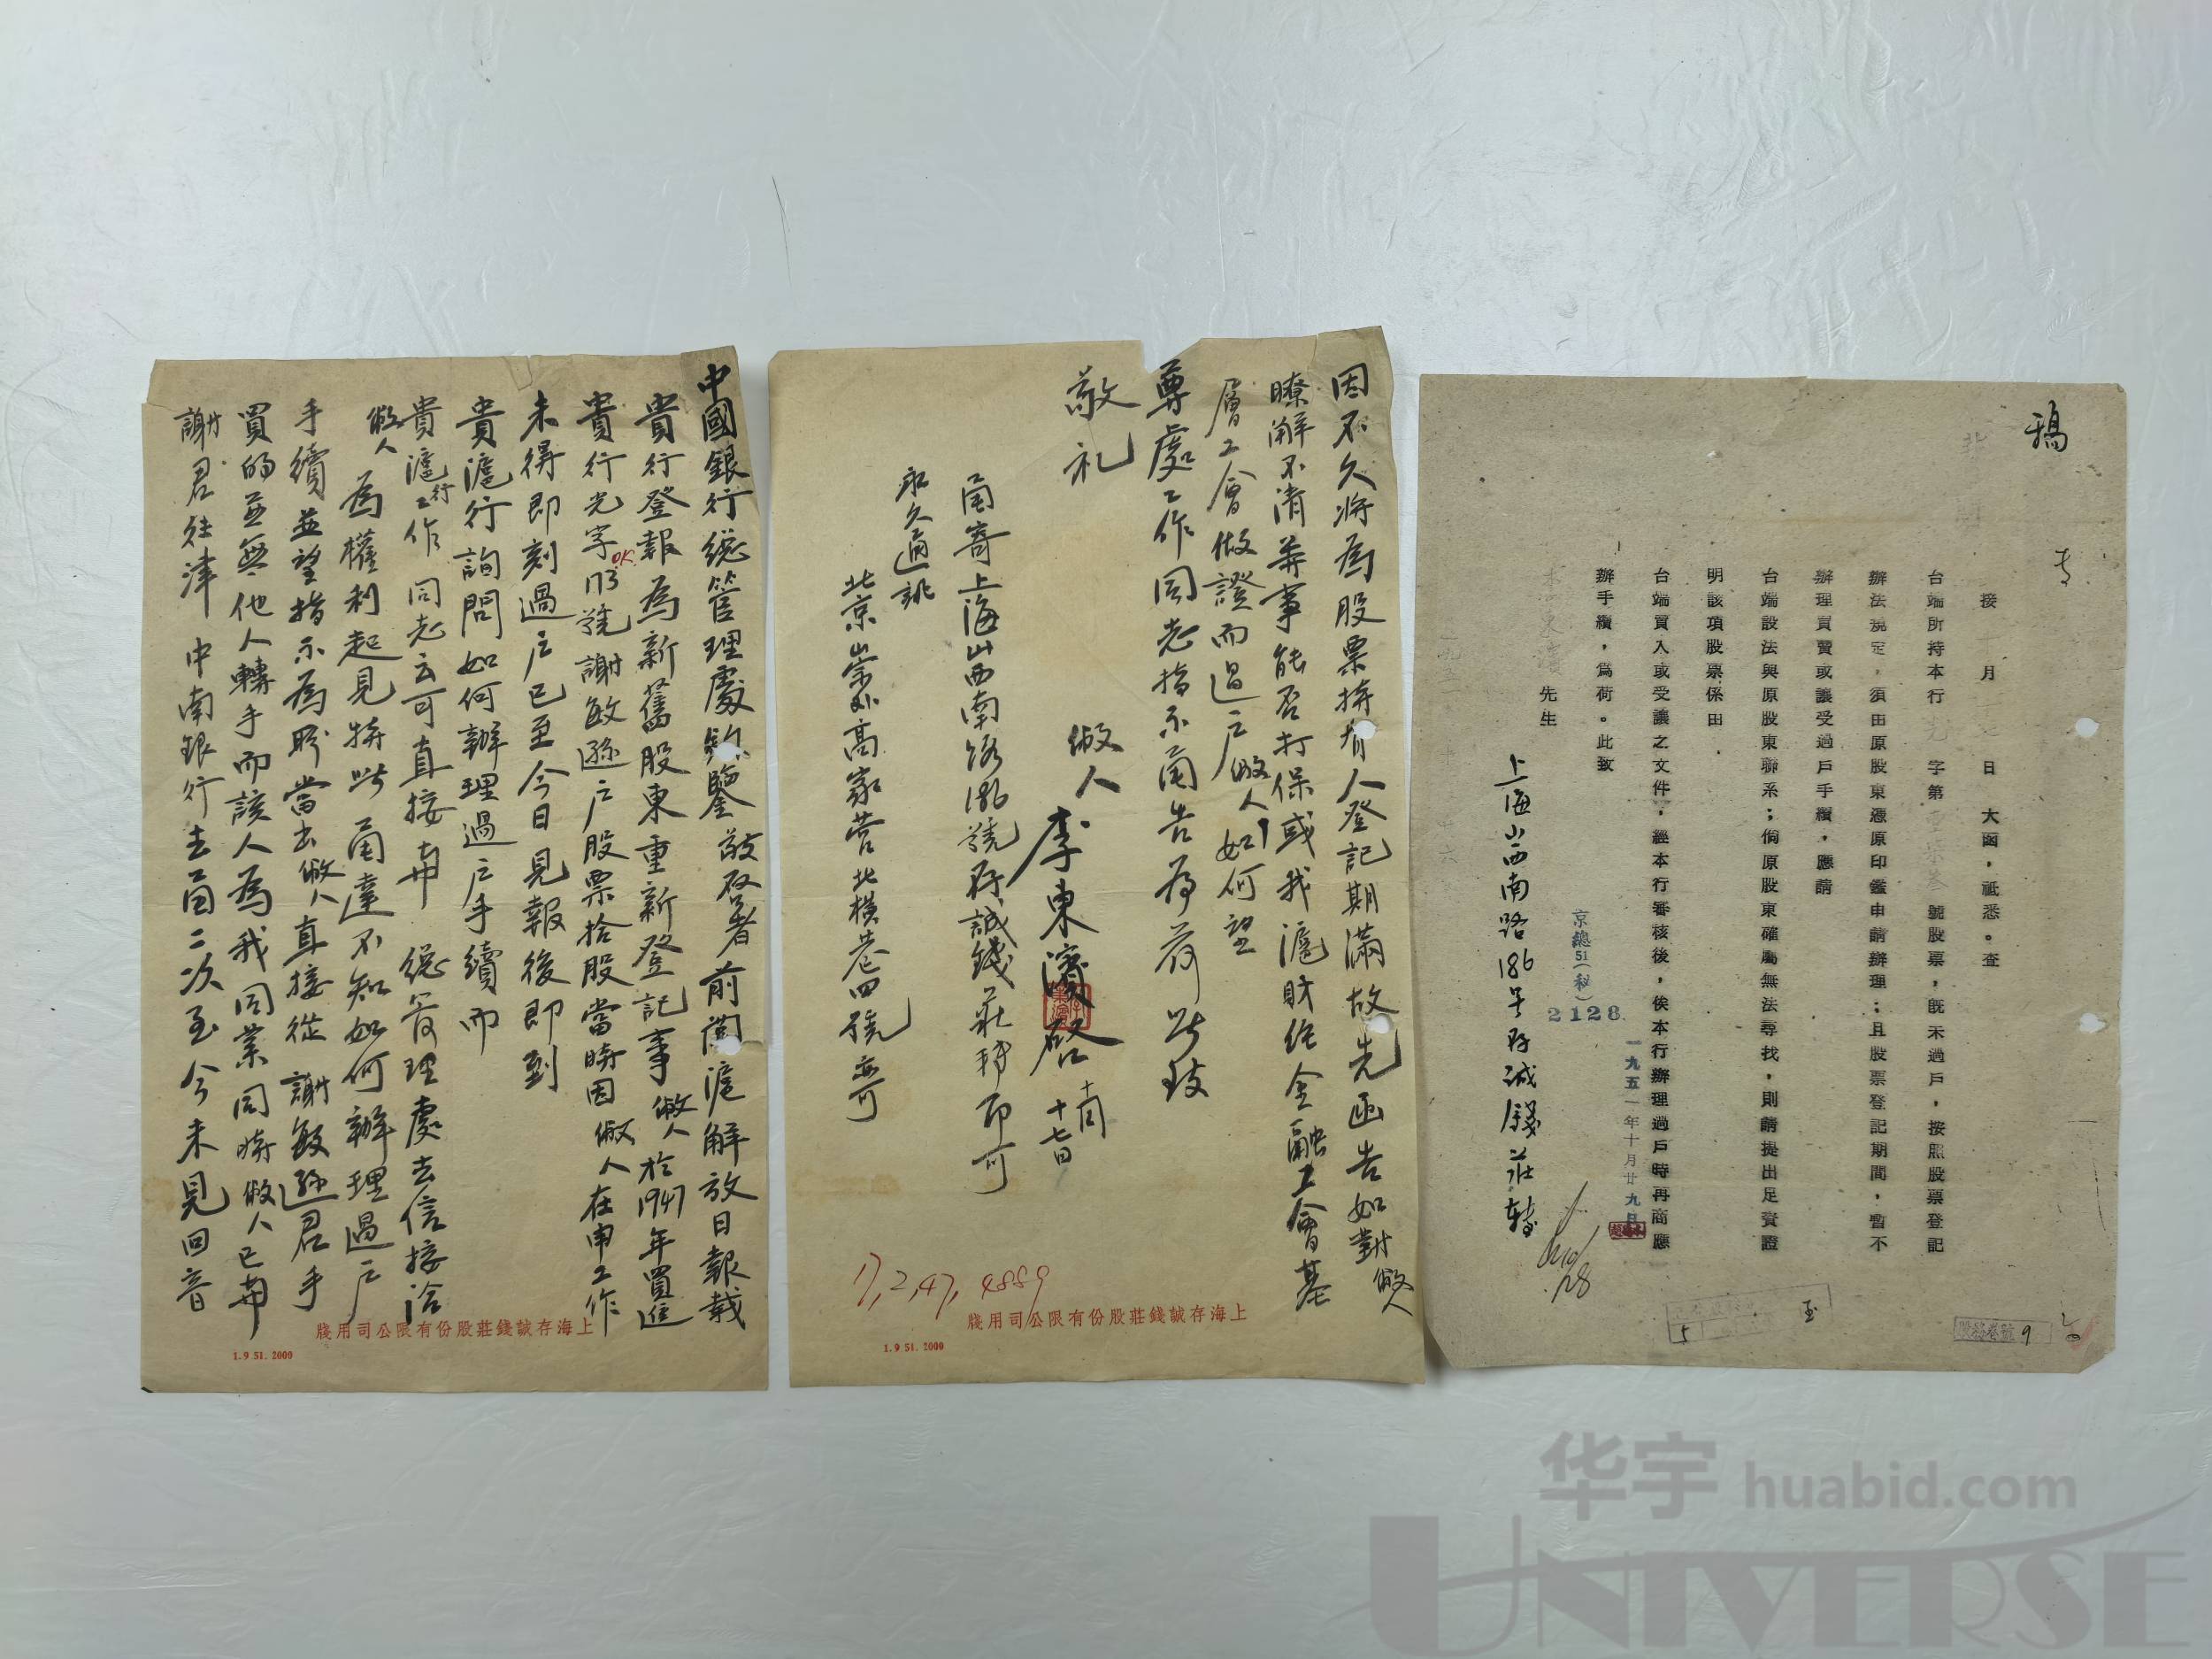 中國銀行總管理處鈞鑒 敬啟者 前閱滬解放日報載
貴行登報為新舊股東重新登記事 僘人於1947年買進
貴行光字173號謝敏遜戶股票拾股當時因僘人在申工作
OK
未得即刻過戶已至今日見報後即到
貴滬行詢問如何辦理過戶手續而
貴滬行工作同志云可直接向 總管理處去信接洽
僘人為權利起見特此函達不知如何辦理過戶
手續並望指示為盼當去僘人直接從謝敏遜君手
買的並無他人轉手而該人為我同業同時僘人已向
謝君往津中南銀行去函二次至今未見回音
上海存誠錢莊股份有限公司用牋
1.9 51. 2000
因不久將為股票持有人登記期滿故先函告如對僘人
瞭解不清等事能否打保或我滬財經金融工會基
層工會做證而過戶僘人如何望
尊處工作同志指示函告為荷 此致
敬礼
僘人 李東濱啓 十月十七日
函寄上海山西南路186號存誠錢莊轉即可
永久通訊
北京崇外高家营北橫巷四號亦可
17,2,47, 4889
上海存誠錢莊股份有限公司用牋
1.9 51. 2000
稿
接 月 日 大函，祗悉。查
台端所持本行 光 字第 壹柒叁 號股票，旣未過戶，按照股票登記
辦法規定，須由原股東憑原印鑑申請辦理；且股票登記期間，暫不
辦理買賣或讓受過戶手續，應請
台端設法與原股東聯系；倘原股東確屬無法尋找，則請提出足資證
明該項股票係由
台端買入或受讓之文件，經本行審核後，俟本行辦理過戶時再商應
辦手續，為荷。此致
李東濱 先生
上海山西南路186号存诚錢莊轉
京總51(秘)
2128
一九五一年十月廿九日
股務卷號 9
华宇 huabid.com
UNIVERSE